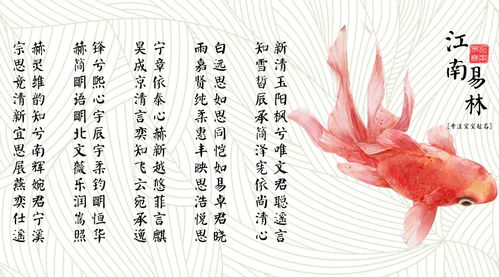 江南易林
[专注宝宝起名]
新清玉阳枫兮唯文君聪遥言
知雪哲辰承简泽宽依尚清心
白远思如思同恺如易卓君晓
雨嘉贤纯柔惠丰映思浩悦思
宁章依泰心赫新越悠菲言麒
昊成京清言奕知飞云宛承逸
锋兮熙心宇辰宇柔钧明恒华
赫简明语明北文薇乐润嵩照
赫灵维韵知兮南辉婉君宁溪
宗思竟清新宜思展燕奕仕遥